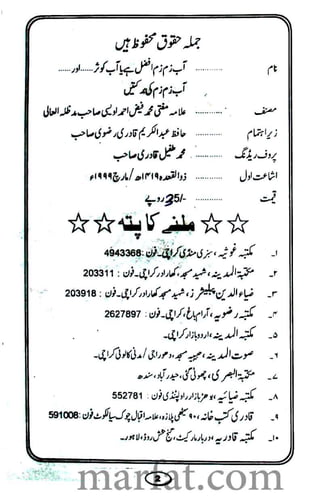 جملہ حقوق محفوظ ہیں
نام ............ آب زم زم افضل ہے یا آب کوثر ...... اور ......
آب زم زم کی برکتیں
مصنف ............ علامہ مفتی محمد فیض احمد اویسی صاحب مدظلہ العالی
زیر اہتمام ............ حافظ عبدالکریم قادری رضوی صاحب
پروف ریڈنگ ............ محمد طفیل قادری صاحب
اشاعت اول ............ ذوالقعدہ ۱۴۱۹ھ / مارچ ۱۹۹۹ء
قیمت ............ 35/- روپے
☆☆ ملنے کا پتہ ☆☆
۱۔ مکتبہ غوثیہ، سبزی منڈی کراچی۔ فون: 4943368
۲۔ مکتبۃ المدینہ، شہید مسجد، کھارادر کراچی۔ فون: 203311
۳۔ ضیاء الدین پبلیشرز، شہید مسجد کھارادر کراچی۔ فون: 203918
۴۔ مکتبہ رضویہ، آرام باغ، کراچی۔ فون: 2627897
۵۔ مکتبہ المدینہ، اردو بازار کراچی۔
۶۔ صوت المدینہ، حبیبیہ مسجد، دھوراجی / مدنی کالونی کراچی۔
۷۔ مکتبۃ البصریٰ، چھوٹی گٹی، حیدرآباد، سندھ
۸۔ مکتبہ ضیائیہ، بوہڑ بازار راولپنڈی فون: 552781
۹۔ قادری کتب خانہ، ۹۰ سٹھی پلازہ، علامہ اقبال چوک سیالکوٹ فون: 591008
۱۰۔ مکتبہ قادریہ، دربار مارکیٹ، گنج بخش روڈ، لاہور۔
marfat.com
2